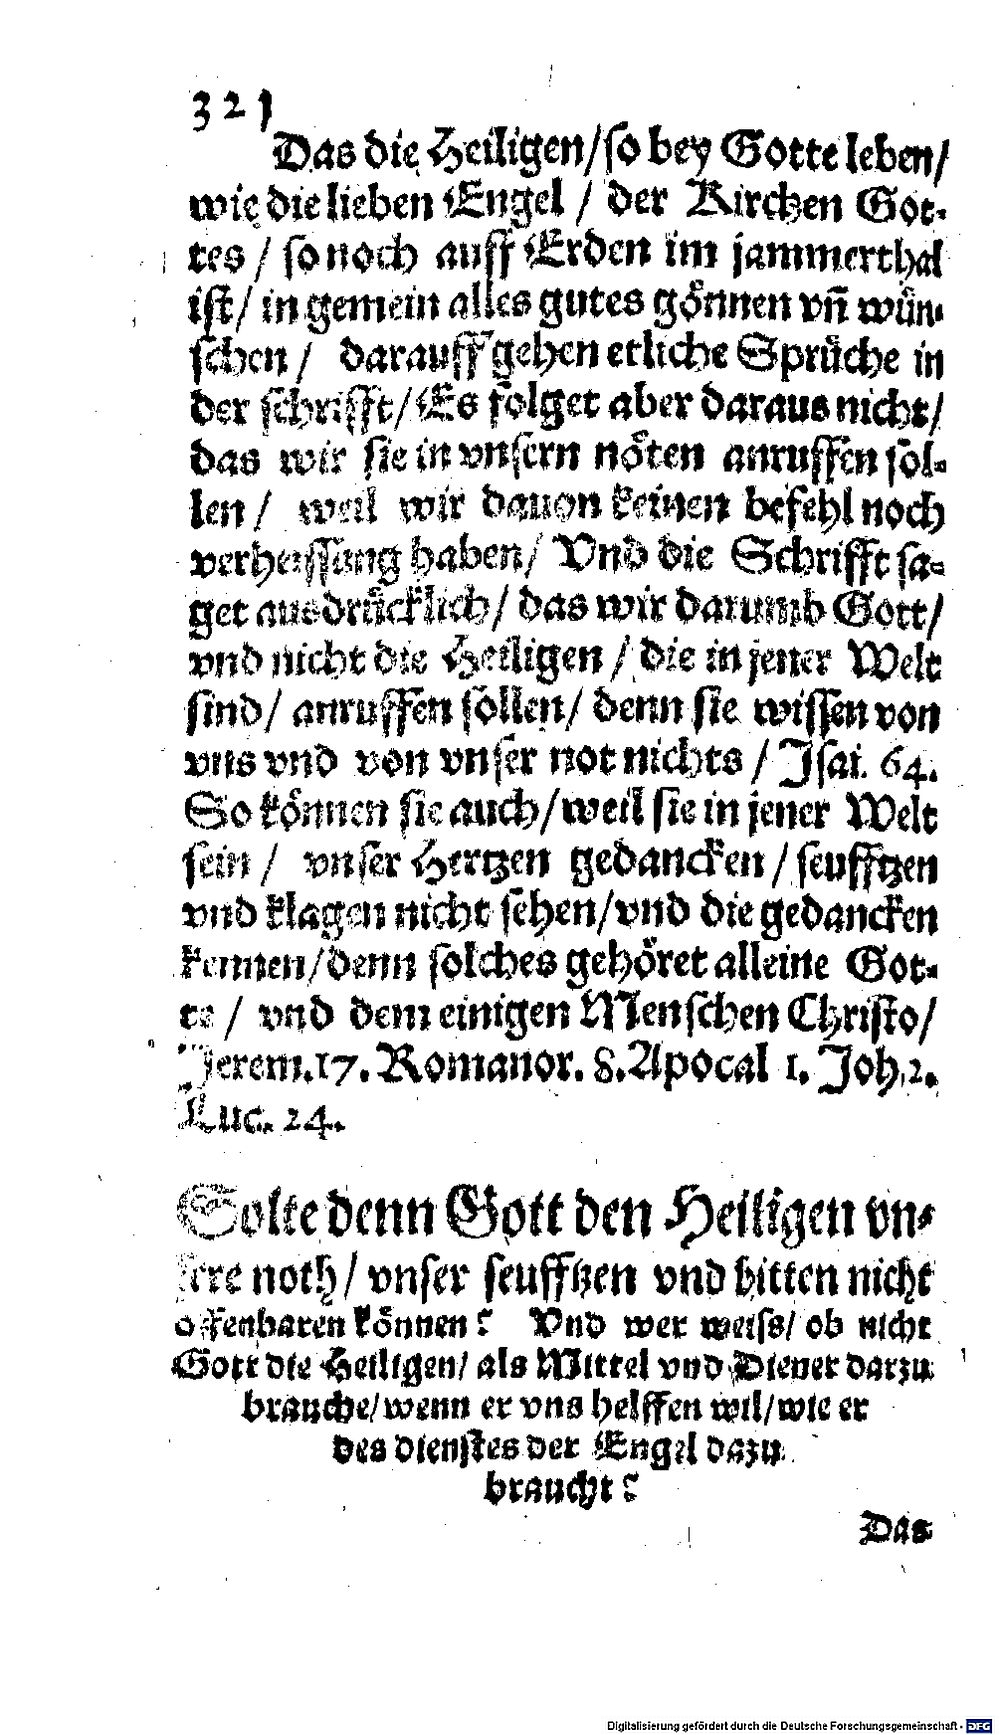 321
Das die Heiligen/so bey Gotte leben/
wie die lieben Engel / der Kirchen Got-
tes / so noch auff Erden im jammerthal
ist/ in gemein alles gutes gönnen vñ wün-
schen / darauff gehen etliche Sprüche in
der schrifft/Es folget aber daraus nicht/
das wir sie in vnsern nöten anruffen sol-
len / weil wir dauon keinen befehl noch
verheissung haben/ Vnd die Schrifft sa-
get ausdrücklich/ das wir darumb Gott/
vnd nicht die Heiligen / die in jener Welt
sind/ anruffen sollen/ denn sie wissen von
vns vnd von vnser not nichts / Jsai. 64.
So können sie auch/weil sie in jener Welt
sein / vnser Hertzen gedancken / seufftzen
vnd klagen nicht sehen/vnd die gedancken
kennen/denn solches gehöret alleine Got-
te / vnd dem einigen Menschen Christo/
Jerem.17. Romanor. 8.Apocal 1. Joh.2.
Luc. 24.
Solte denn Gott den Heiligen vn-
sere noth/ vnser seufftzen vnd bitten nicht
offenbaren können? Vnd wer weiss/ ob nicht
Gott die Heiligen/ als Mittel vnd Diener darzu
brauche/wenn er vns helffen wil/wie er
des dienstes der Engel dazu
braucht?
Das
Digitalisierung gefördert durch die Deutsche Forschungsgemeinschaft - DFG